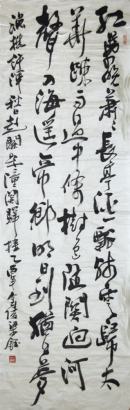 紅葉晚蕭蕭長亭酒一瓢殘雲歸太
華疎雨過中條樹色隨關迥河
聲入海遥帝鄉明日到猶自夢
漁樵許渾秋日赴闕題潼關驛樓